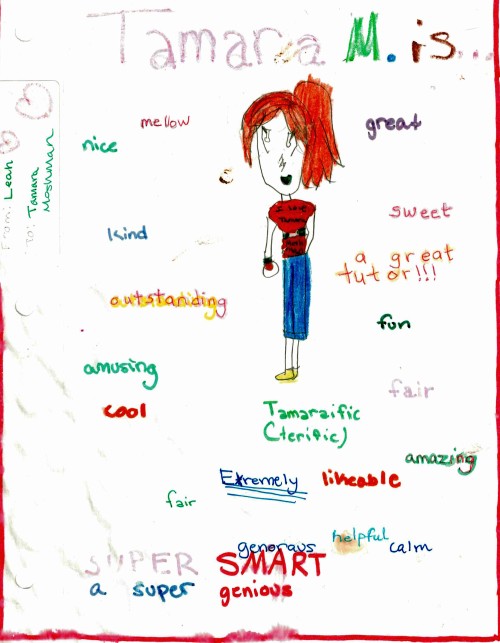 Tamara M. is...
From: Leah
To: Tamara
Moshman
mellow
great
nice
sweet
kind
I love
Tamara
a great
tutor!!!
outstanding
fun
amusing
fair
cool
Tamaraific
(terific)
amazing
Extremely likeable
fair
helpful
generous calm
SUPER SMART
a super genious